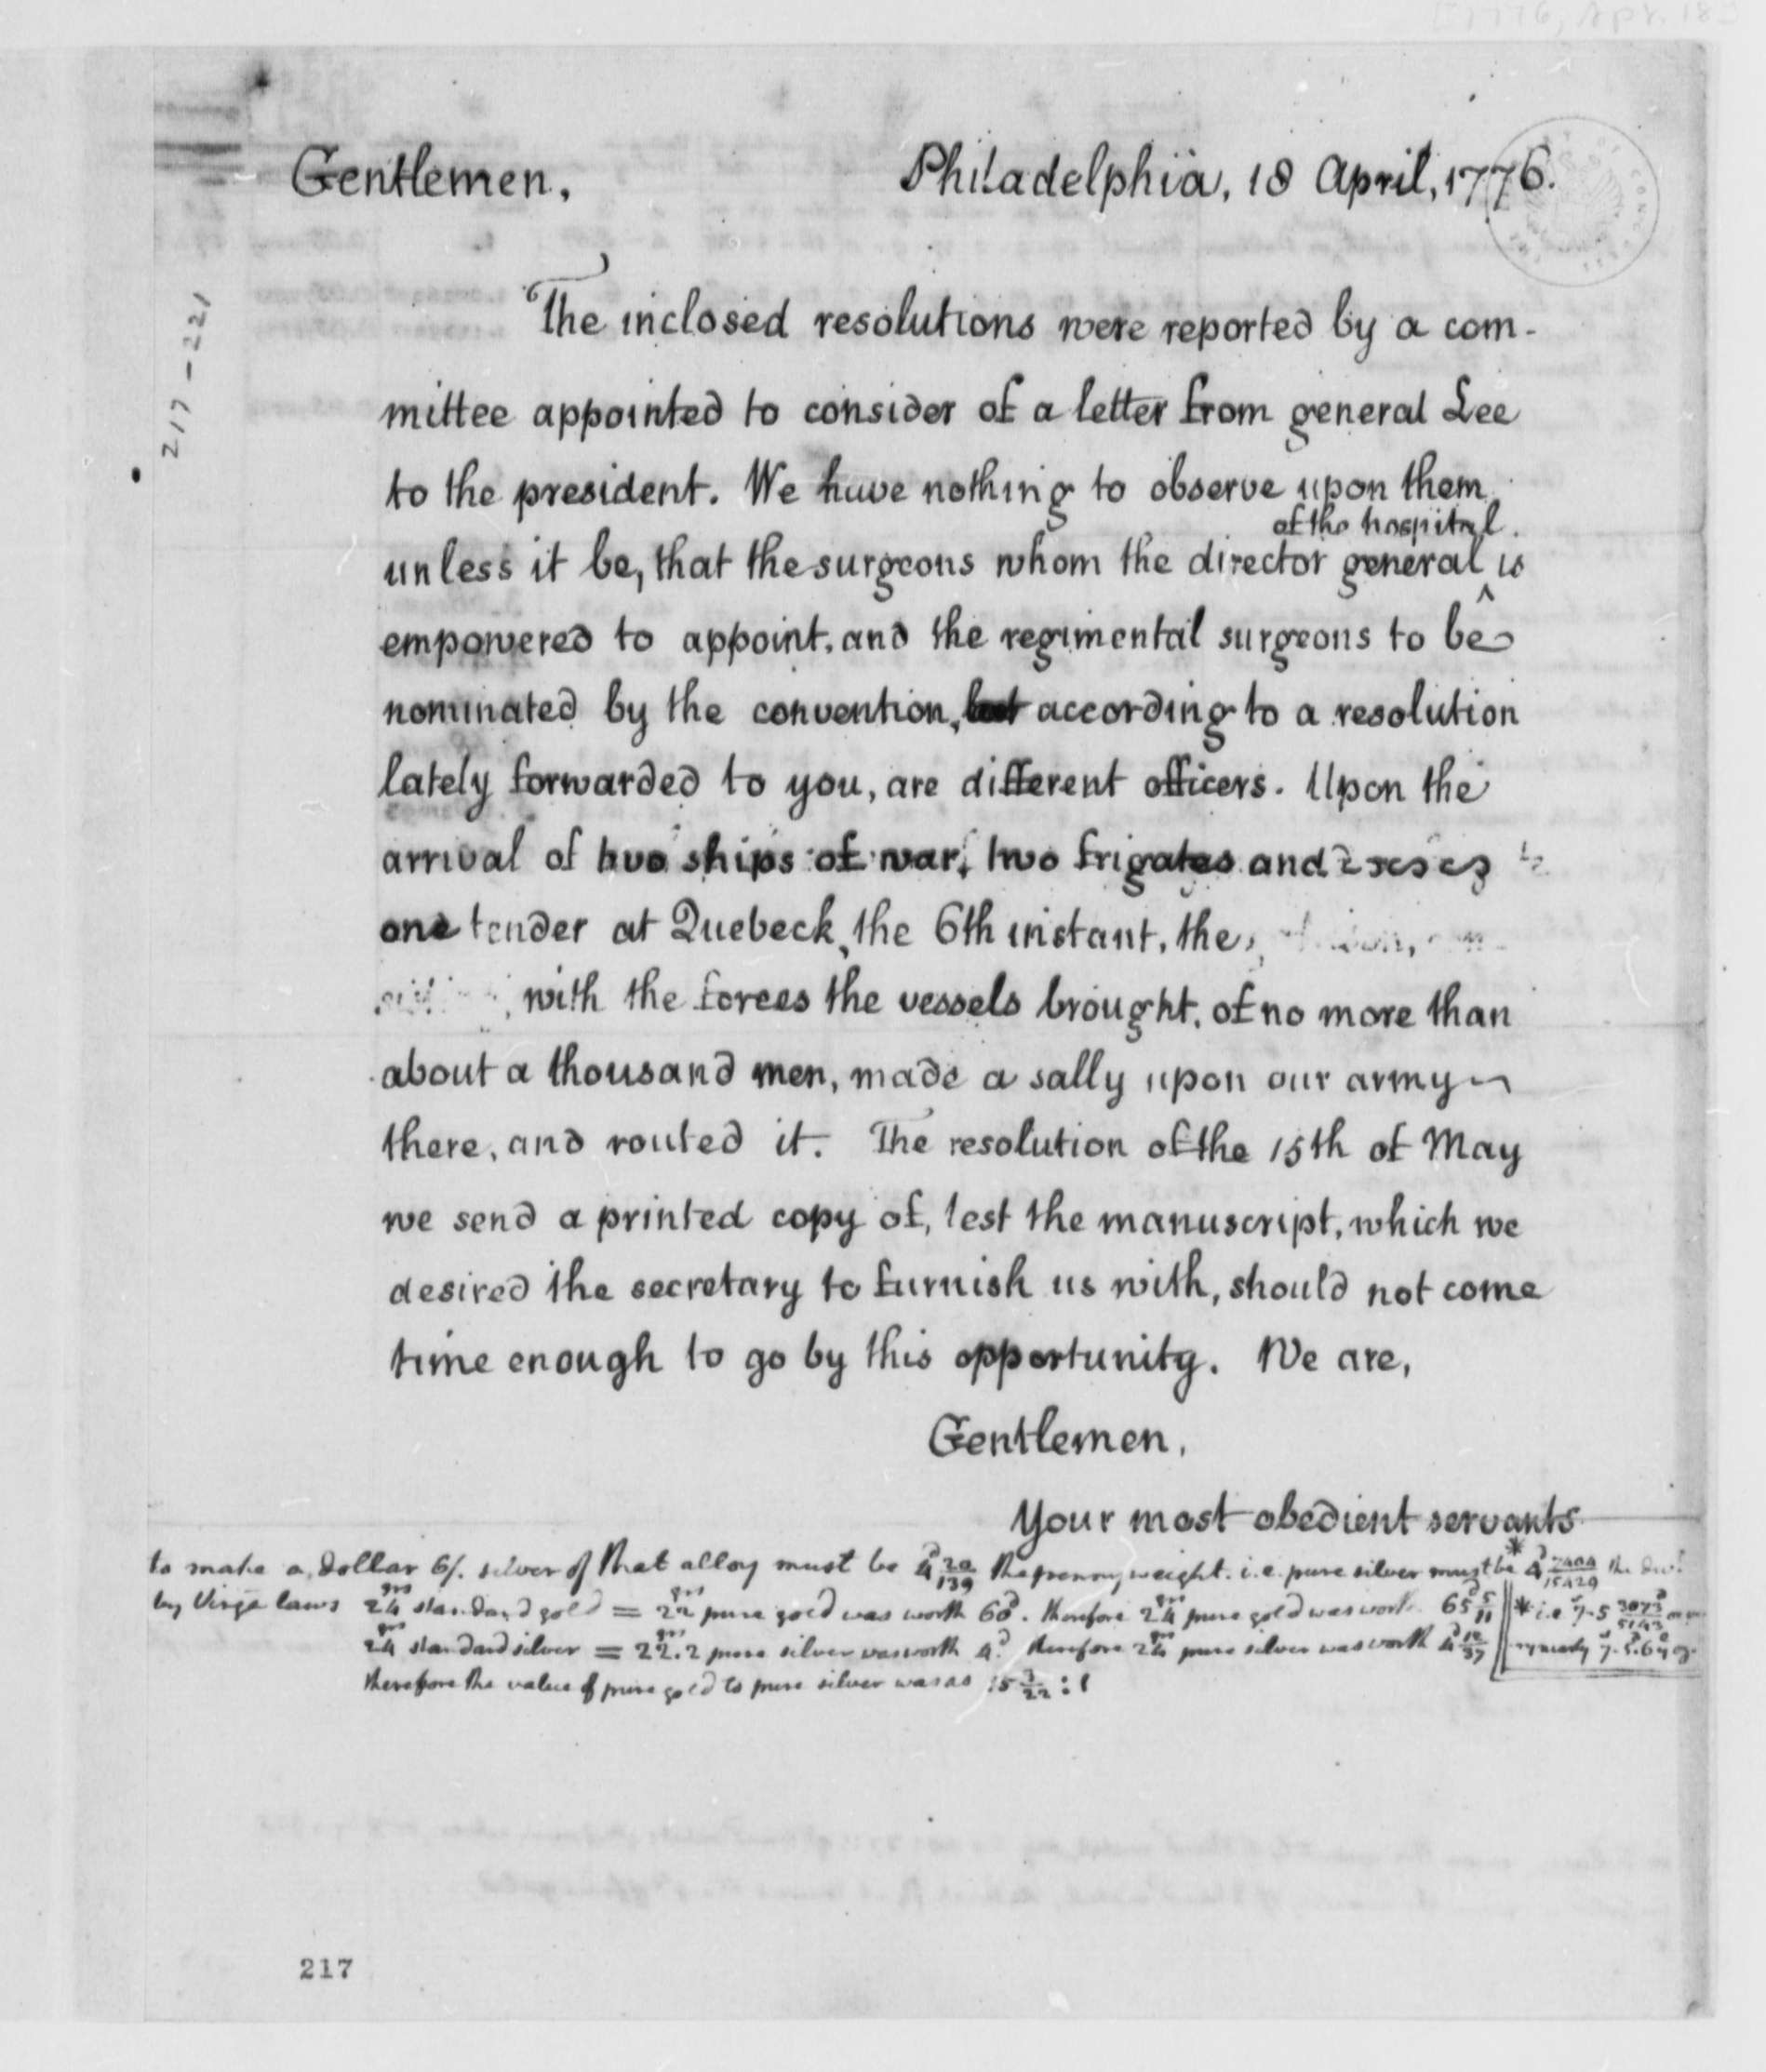 Gentlemen,
Philadelphia, 18 April, 1776.
217-221
The inclosed resolutions were reported by a com-
mittee appointed to consider of a letter from general Lee
to the president. We have nothing to observe upon them
of the hospital
unless it be, that the surgeons whom the director general ^ is
empowered to appoint, and the regimental surgeons to be
nominated by the convention, according to a resolution
lately forwarded to you, are different officers. Upon the
arrival of two ships of war, two frigates and
one tender at Quebeck, the 6th instant, the
with the forces the vessels brought, of no more than
about a thousand men, made a sally upon our army
there, and routed it. The resolution of the 15th of May
we send a printed copy of, lest the manuscript, which we
desired the secretary to furnish us with, should not come
time enough to go by this opportunity. We are,
Gentlemen,
Your most obedient servants
to make a dollar 6/. silver of that alloy must be 4d 20/139 the pennyweight. i.e. pure silver must be * 4d the
by Virga laws 24 grs standard gold = 22 grs pure gold was worth 60d. therefore 24 grs pure gold was worth 65d 5/11 * i.e
24 grs standard silver = 22.2 pure silver was worth 4d. therefore 24 grs pure silver was worth 4d 12/37
therefore the value of pure gold to pure silver was as 15 3/22 : 1
217